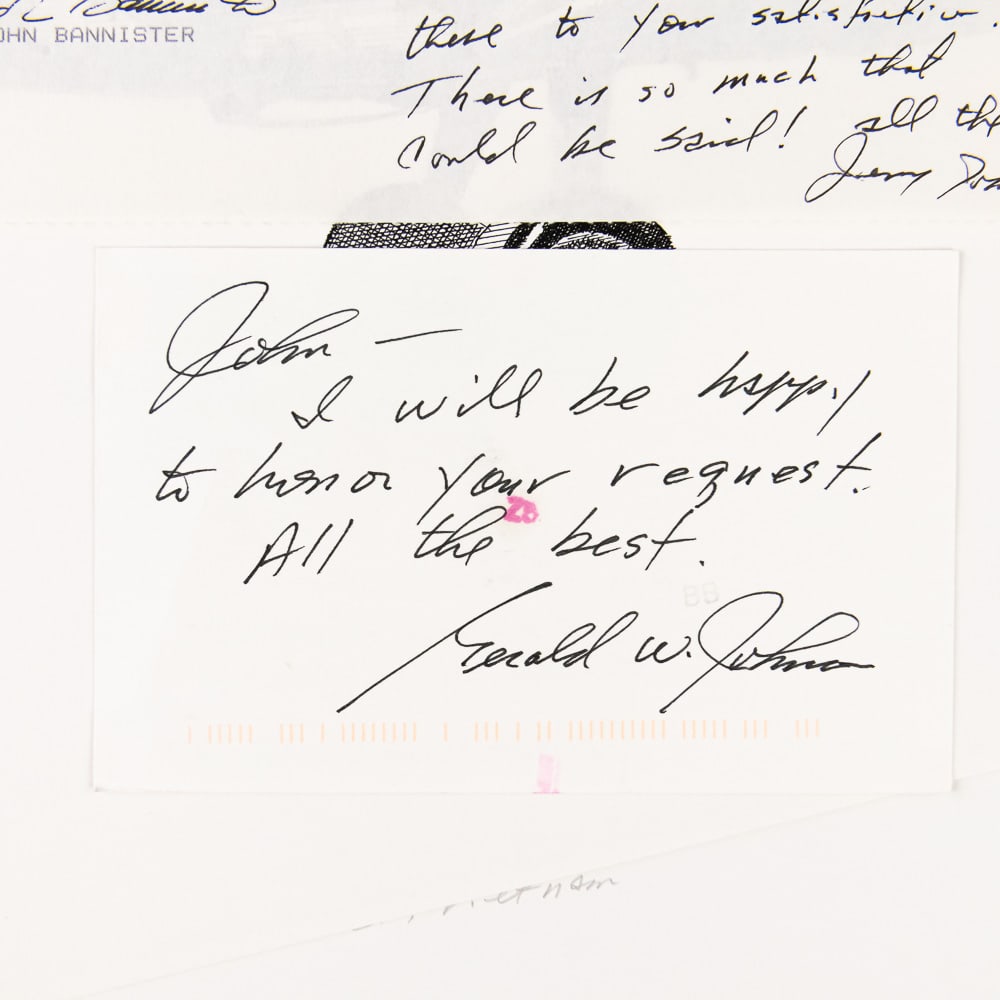 OHN BANNISTER
these to your satisfaction.
There is so much that
could be said! all the
Jerry
John —
I will be happy
to honor your request.
All the best.
28
BB
Gerald W. Johnson
Vietnam